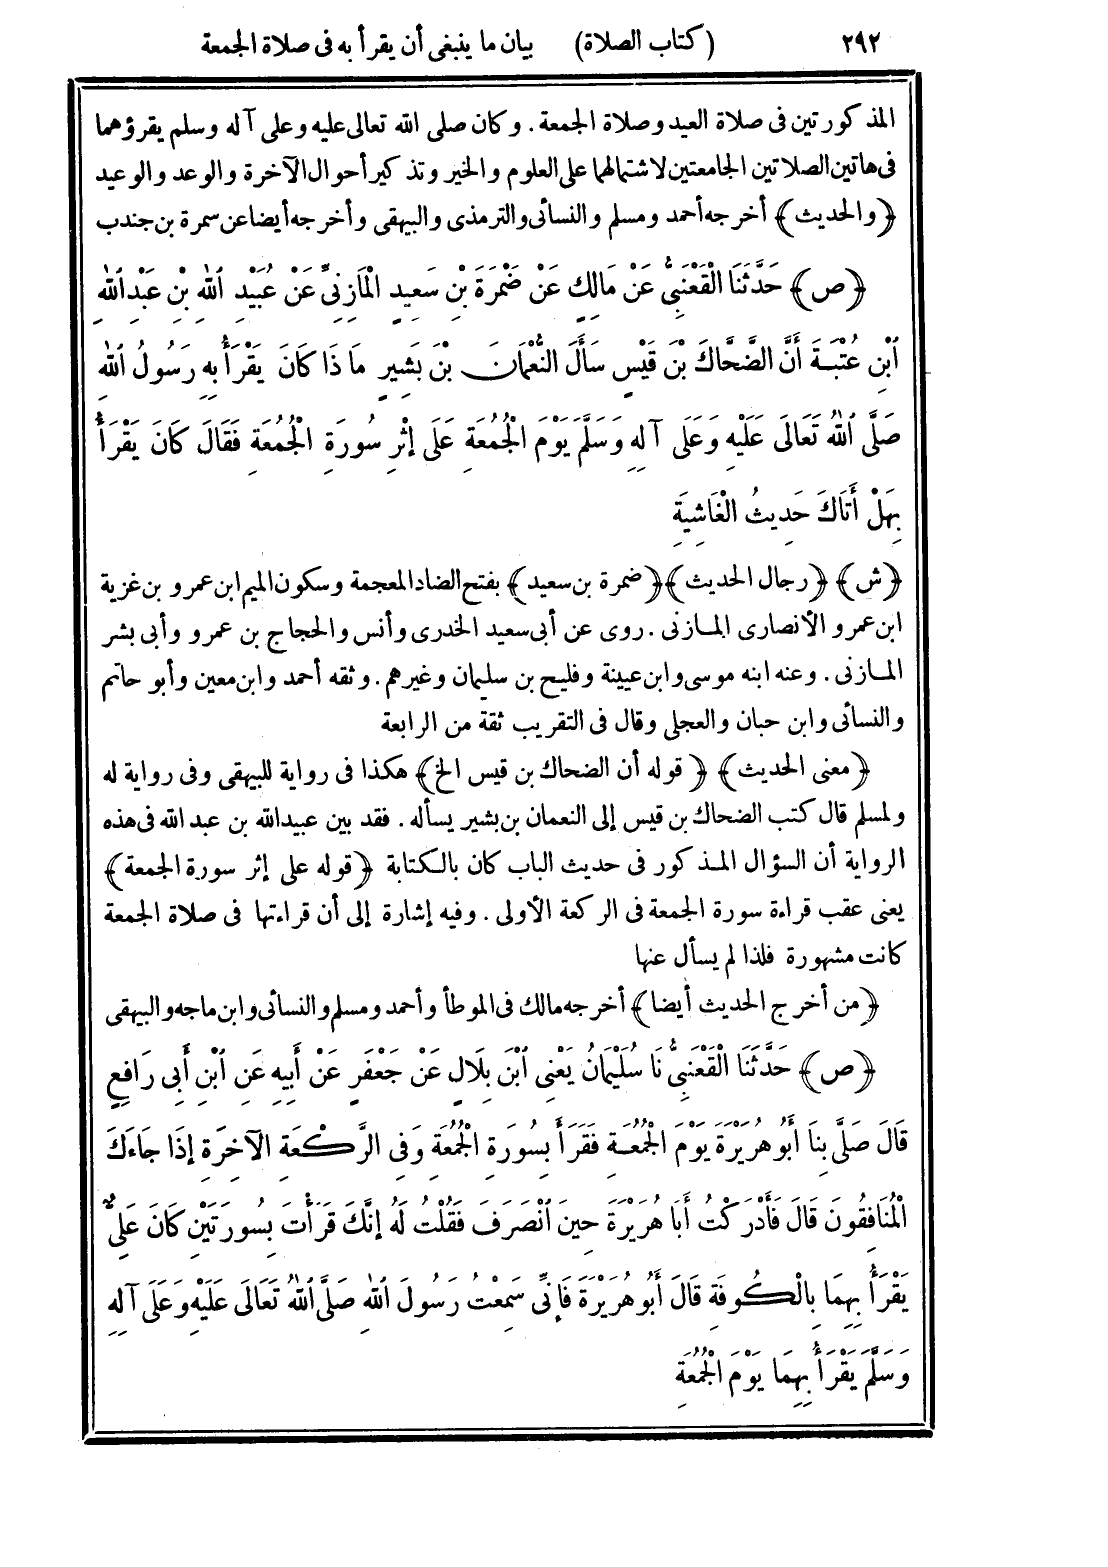 ٢٩٢ (كتاب الصلاة) بيان ما ينبغى أن يقرأ به فى صلاة الجمعة
المذكورتين فى صلاة العيد وصلاة الجمعة. وكان صلى الله تعالى عليه وعلى آله وسلم يقرؤهما
فى هاتين الصلاتين الجامعتين لاشتمالهما على العلوم والخير وتذكير أحوال الآخرة والوعد والوعيد
﴿والحديث﴾ أخرجه أحمد ومسلم والنسائى والترمذى والبيهقى وأخرجه أيضا عن سمرة بن جندب
﴿ص﴾ حَدَّثَنَا الْقَعْنَبِىُّ عَنْ مَالِكٍ عَنْ ضَمْرَةَ بْنِ سَعِيدٍ الْمَازِنِىِّ عَنْ عُبَيْدِ اللهِ بْنِ عَبْدِ اللهِ
ابْنِ عُتْبَةَ أَنَّ الضَّحَّاكَ بْنَ قَيْسٍ سَأَلَ النُّعْمَانَ بْنَ بَشِيرٍ مَاذَا كَانَ يَقْرَأُ بِهِ رَسُولُ اللهِ
صَلَّى اللهُ تَعَالَى عَلَيْهِ وَعَلَى آلِهِ وَسَلَّمَ يَوْمَ الْجُمُعَةِ عَلَى إِثْرِ سُورَةِ الْجُمُعَةِ فَقَالَ كَانَ يَقْرَأُ
بِهَلْ أَتَاكَ حَدِيثُ الْغَاشِيَةِ
﴿ش﴾ ﴿رجال الحديث﴾ ﴿ضمرة بن سعيد﴾ بفتح الضاد المعجمة وسكون الميم ابن عمرو بن غزية
ابن عمرو الأنصارى المازنى. روى عن أبى سعيد الخدرى وأنس والحجاج بن عمرو وأبى بشر
المازنى. وعنه ابنه موسى وابن عيينة وفليح بن سليمان وغيرهم. وثقه أحمد وابن معين وأبو حاتم
والنسائى وابن حبان والعجلى وقال فى التقريب ثقة من الرابعة
﴿معنى الحديث﴾ ﴿قوله أن الضحاك بن قيس الخ﴾ هكذا فى رواية للبيهقى وفى رواية له
ولمسلم قال كتب الضحاك بن قيس إلى النعمان بن بشير يسأله. فقد بين عبيد الله بن عبد الله فى هذه
الرواية أن السؤال المذكور فى حديث الباب كان بالكتابة ﴿قوله على إثر سورة الجمعة﴾
يعنى عقب قراءة سورة الجمعة فى الركعة الأولى. وفيه إشارة إلى أن قراءتها فى صلاة الجمعة
كانت مشهورة فلذا لم يسأل عنها
﴿من أخرج الحديث أيضا﴾ أخرجه مالك فى الموطأ وأحمد ومسلم والنسائى وابن ماجه والبيهقى
﴿ص﴾ حَدَّثَنَا الْقَعْنَبِىُّ نَا سُلَيْمَانُ يَعْنِى ابْنَ بِلَالٍ عَنْ جَعْفَرٍ عَنْ أَبِيهِ عَنِ ابْنِ أَبِى رَافِعٍ
قَالَ صَلَّى بِنَا أَبُو هُرَيْرَةَ يَوْمَ الْجُمُعَةِ فَقَرَأَ بِسُورَةِ الْجُمُعَةِ وَفِى الرَّكْعَةِ الْآخِرَةِ إِذَا جَاءَكَ
الْمُنَافِقُونَ قَالَ فَأَدْرَكْتُ أَبَا هُرَيْرَةَ حِينَ انْصَرَفَ فَقُلْتُ لَهُ إِنَّكَ قَرَأْتَ بِسُورَتَيْنِ كَانَ عَلِىٌّ
يَقْرَأُ بِهِمَا بِالْكُوفَةِ قَالَ أَبُو هُرَيْرَةَ فَإِنِّى سَمِعْتُ رَسُولَ اللهِ صَلَّى اللهُ تَعَالَى عَلَيْهِ وَعَلَى آلِهِ
وَسَلَّمَ يَقْرَأُ بِهِمَا يَوْمَ الْجُمُعَةِ